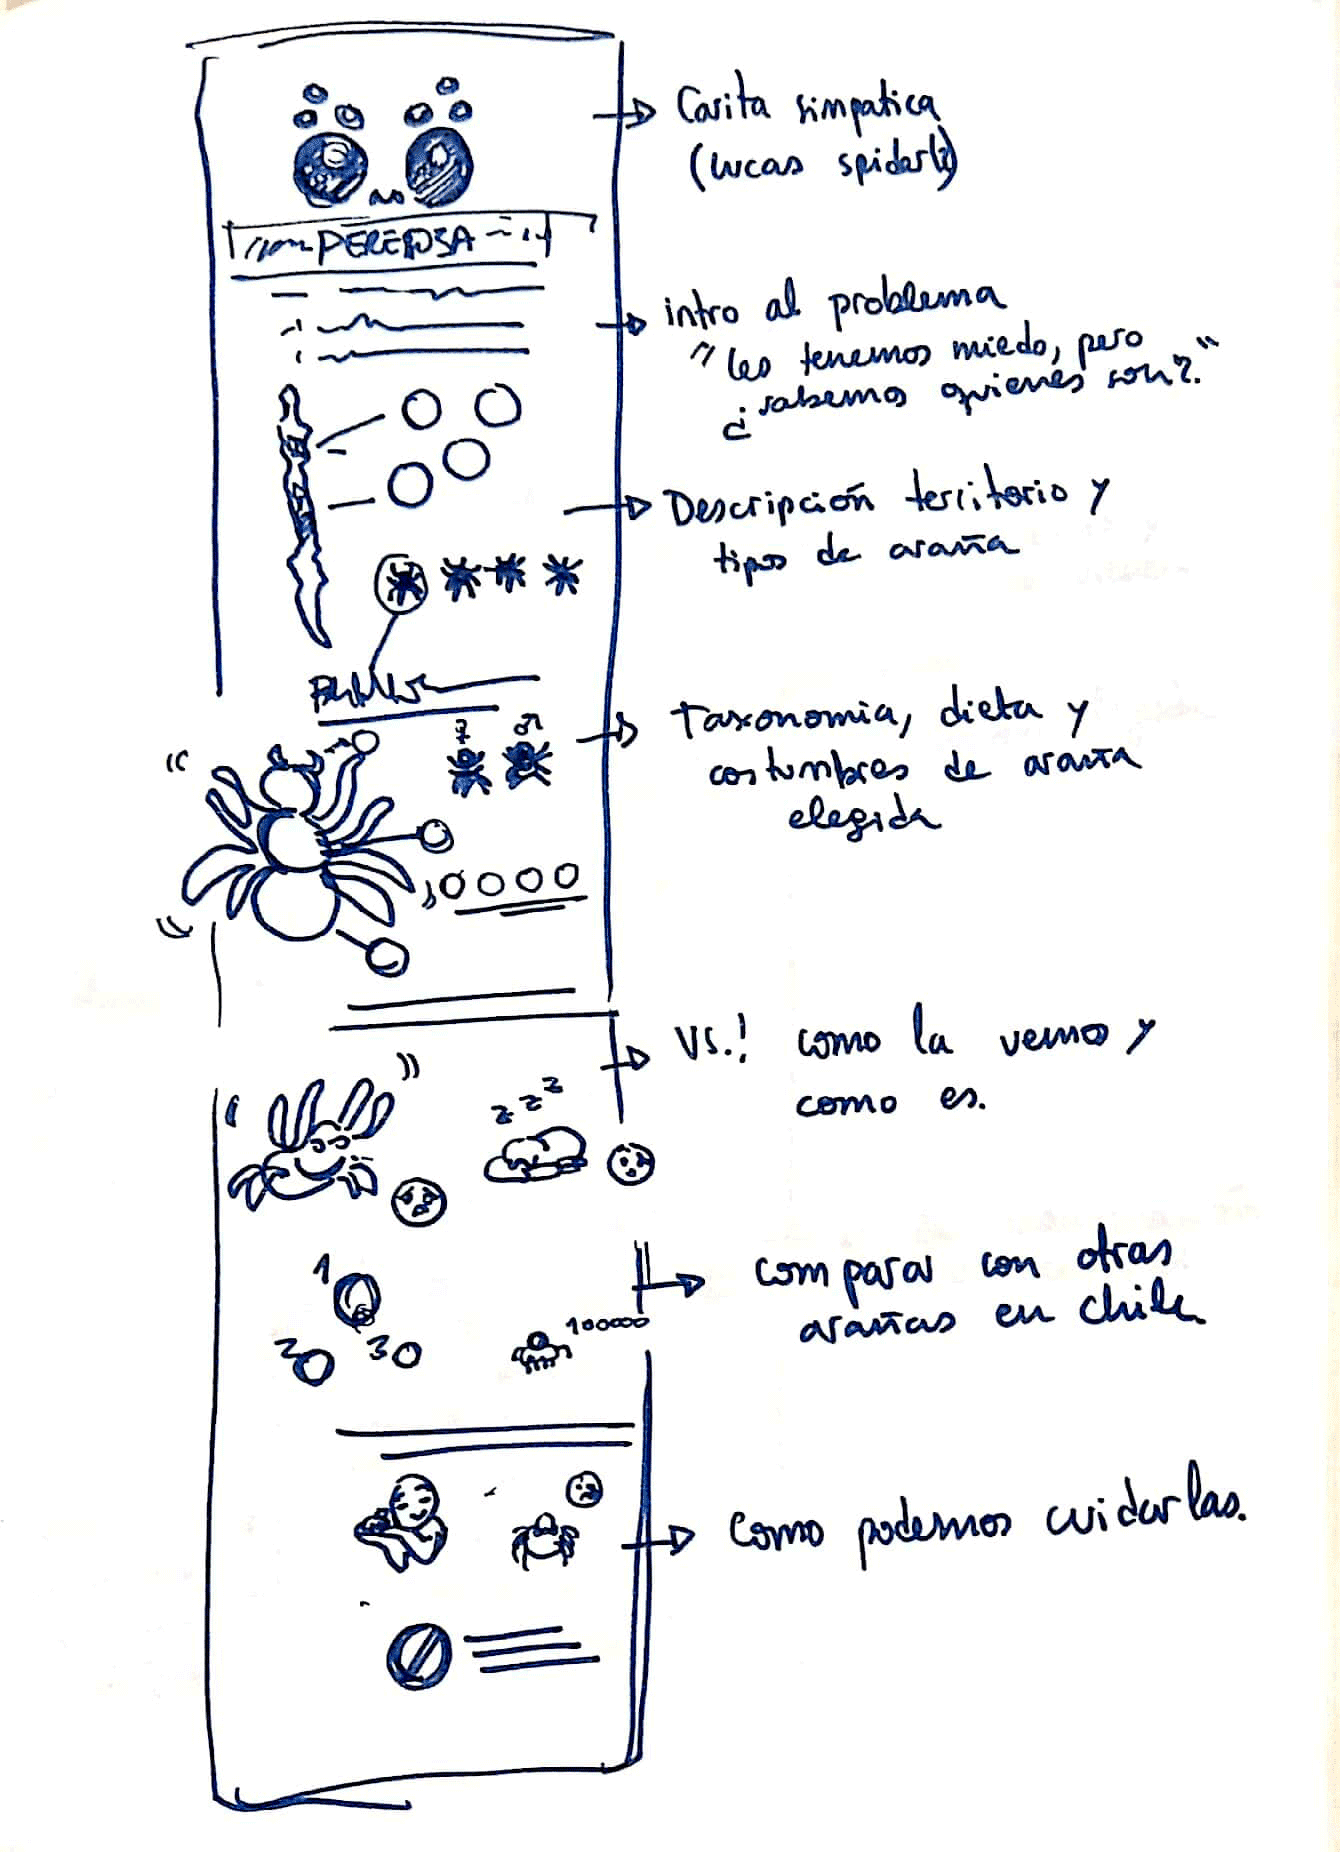 Carita simpatica
(lucas spider(?)
intro al problema
"les tenemos miedo, pero
¿sabemos quienes son?."
Descripción territorio y
tipos de araña
♀ ♂
Taxonomia, dieta y
costumbres de araña
elegida
VS.! como la vemos y
como es.
z z z
1
comparar con otras
arañas en chile
100000
2 3
Como podemos cuidarlas.